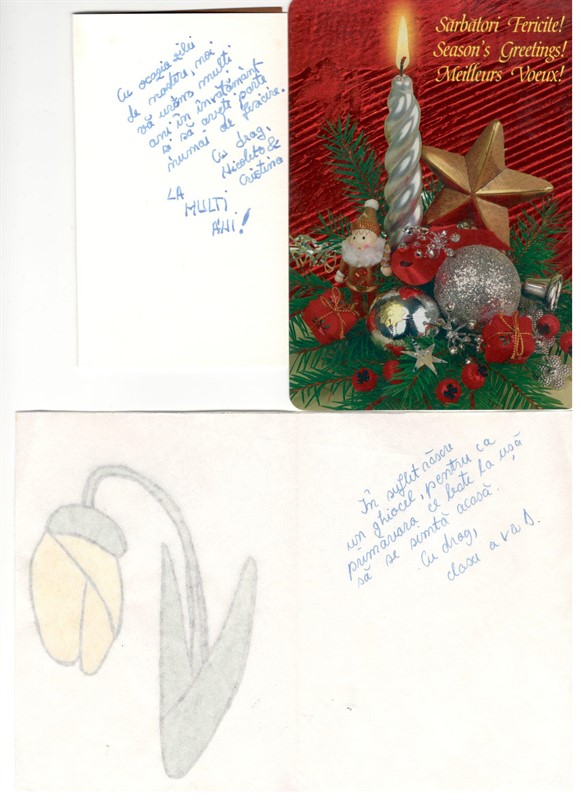 Cu ocazia zilei
de naștere, noi
vă urăm multi
ani în învătământ
și să aveți parte
numai de fericire.
Cu drag,
Nicoleta &
Cristina
LA
MULTI
ANI!
Sărbători Fericite!
Season's Greetings!
Meilleurs Voeux!
În suflet răsare
un ghiocel, pentru ca
primăvara ce bate la ușă
să se simtă acasă.
Cu drag,
clasa a V a D.